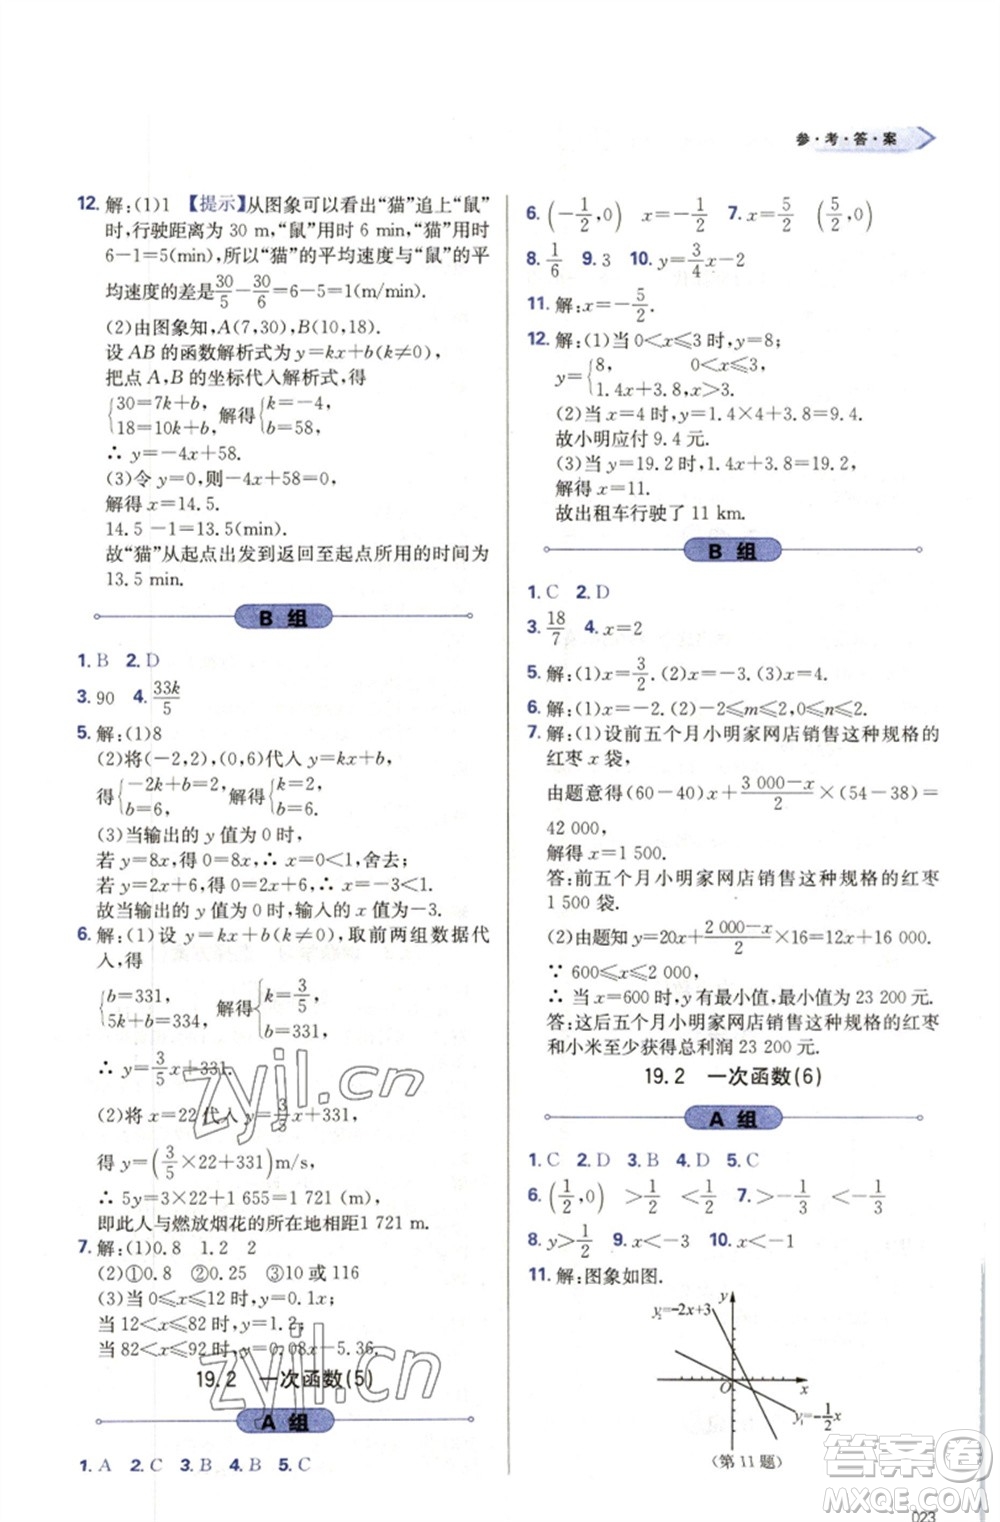 参·考·答·案
12. 解:(1)1 【提示】从图象可以看出“猫”追上“鼠”
时,行驶距离为 30 m,“鼠”用时 6 min,“猫”用时
6-1=5(min),所以“猫”的平均速度与“鼠”的平
均速度的差是30/5-30/6=6-5=1(m/min).
(2)由图象知,A(7,30),B(10,18).
设 AB 的函数解析式为 y=kx+b(k≠0),
把点 A,B 的坐标代入解析式,得
{30=7k+b, 解得{k=-4,
18=10k+b, b=58,
∴ y=-4x+58.
(3)令 y=0,则-4x+58=0,
解得 x=14.5.
14.5-1=13.5(min).
故“猫”从起点出发到返回至起点所用的时间为
13.5 min.
B 组
1. B 2. D
3. 90 4. 33k/5
5. 解:(1)8
(2)将(-2,2),(0,6)代入 y=kx+b,
得{-2k+b=2, 解得{k=2,
b=6, b=6.
(3)当输出的 y 值为 0 时,
若 y=8x,得 0=8x,∴ x=0<1,舍去;
若 y=2x+6,得 0=2x+6,∴ x=-3<1.
故当输出的 y 值为 0 时,输入的 x 值为-3.
6. 解:(1)设 y=kx+b(k≠0),取前两组数据代
入,得
{b=331, 解得{k=3/5,
5k+b=334, b=331.
∴ y=3/5x+331.
(2)将 x=22 代入 y=3/5x+331,
得 y=(3/5×22+331)m/s,
∴ 5y=3×22+1 655=1 721(m),
即此人与燃放烟花的所在地相距1 721 m.
7. 解:(1)0.8 1.2 2
(2)①0.8 ②0.25 ③10 或 116
(3)当 0≤x≤12 时,y=0.1x;
当 12<x≤82 时,y=1.2;
当 82<x≤92 时,y=0.08x-5.36.
19.2 一次函数(5)
A 组
1. A 2. C 3. B 4. B 5. C
6. (-1/2,0) x=-1/2 7. x=5/2 (5/2,0)
8. 1/6 9. 3 10. y=3/4x-2
11. 解:x=-5/2.
12. 解:(1)当 0<x≤3 时,y=8;
y={8, 0<x≤3,
1.4x+3.8,x>3.
(2)当 x=4 时,y=1.4×4+3.8=9.4.
故小明应付 9.4 元.
(3)当 y=19.2 时,1.4x+3.8=19.2,
解得 x=11.
故出租车行驶了 11 km.
B 组
1. C 2. D
3. 18/7 4. x=2
5. 解:(1)x=3/2.(2)x=-3.(3)x=4.
6. 解:(1)x=-2.(2)-2≤m≤2,0≤n≤2.
7. 解:(1)设前五个月小明家网店销售这种规格的
红枣 x 袋,
由题意得(60-40)x+3 000-x/2×(54-38)=
42 000,
解得 x=1 500.
答:前五个月小明家网店销售这种规格的红枣
1 500 袋.
(2)由题知 y=20x+2 000-x/2×16=12x+16 000.
∵ 600≤x≤2 000,
∴ 当 x=600 时,y 有最小值,最小值为 23 200 元.
答:这后五个月小明家网店销售这种规格的红枣
和小米至少获得总利润 23 200 元.
19.2 一次函数(6)
A 组
1. C 2. D 3. B 4. D 5. C
6. (1/2,0) >1/2 <1/2 7. >-1/3 <-1/3
8. y>1/2 9. x<-3 10. x<-1
11. 解:图象如图.
y₂=-2x+3
y
O
x
y₁=-1/2x
(第 11 题)
023
zyjl.cn
zyjl.cn
答案圈
MXQE.COM